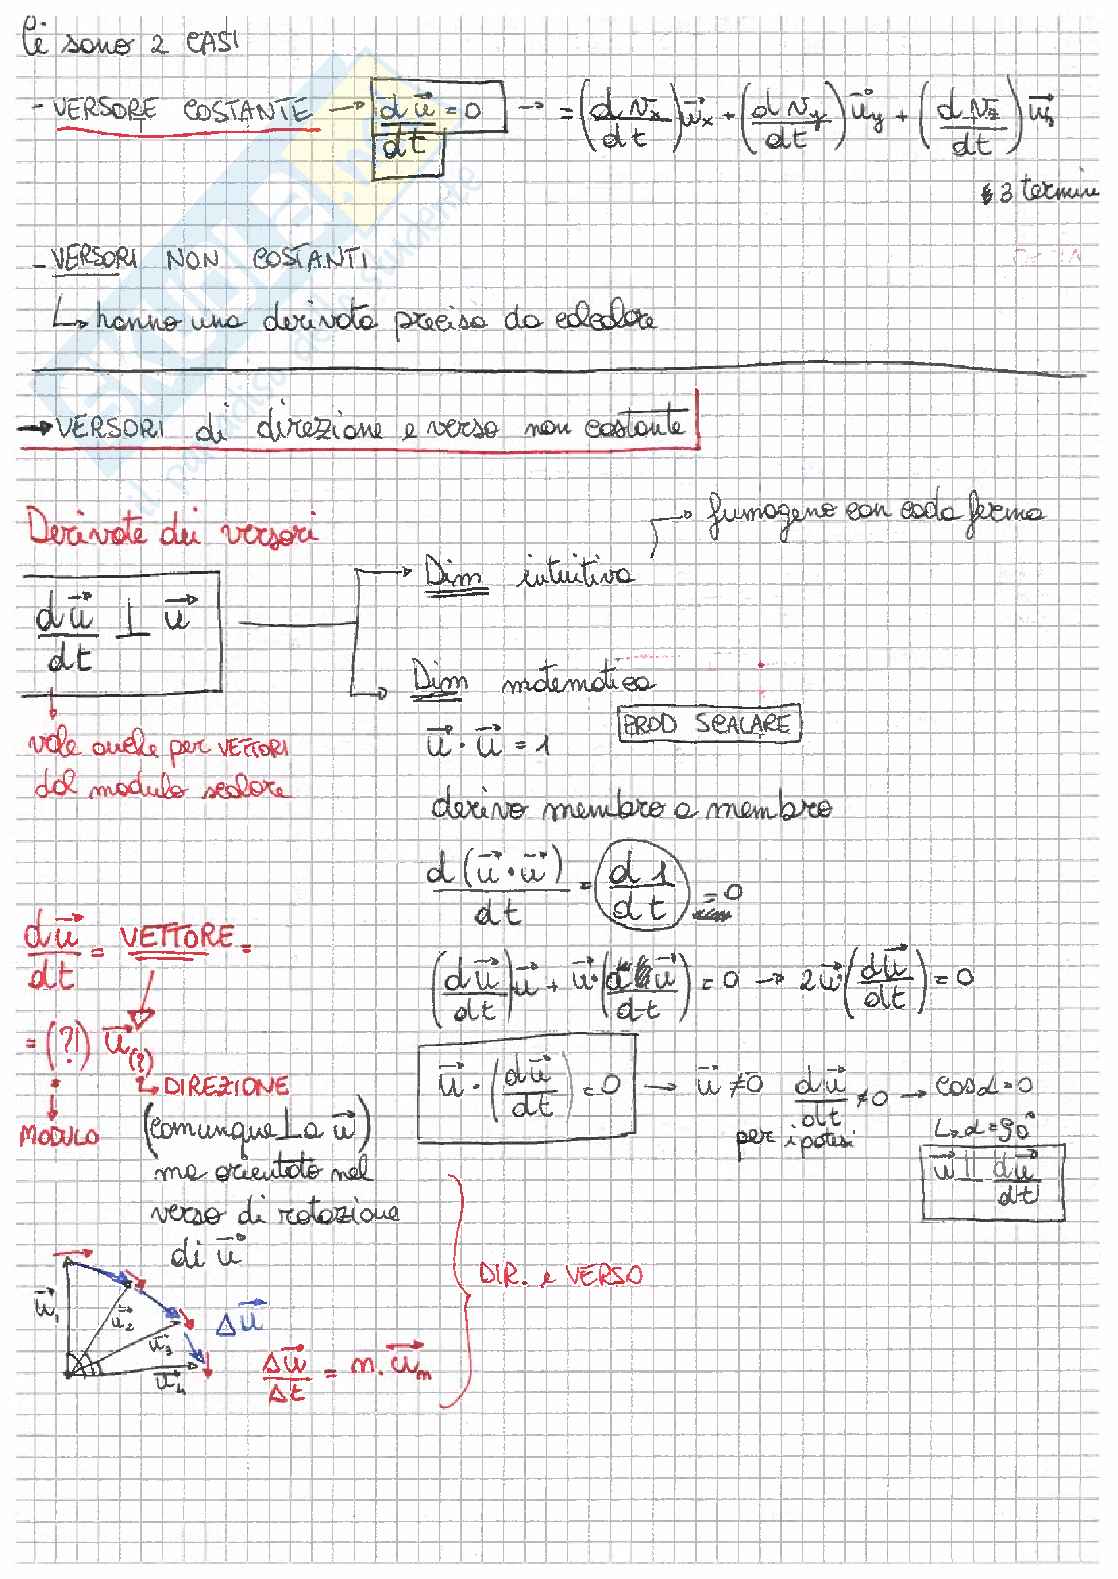 Ci sono 2 CASI
- VERSORE COSTANTE → du⃗/dt = 0 → = (dVx/dt) u⃗x + (dVy/dt) u⃗y + (dVz/dt) u⃗z
3 termini
- VERSORI NON COSTANTI
↳ hanno una derivata precisa da calcolare
→ VERSORI di direzione e verso non costante
Derivate dei versori
du⃗/dt ⊥ u⃗
vale anche per VETTORI
dal modulo scalare
→ Dim intuitiva → fumogeno con coda ferma
→ Dim matematica
PROD SCALARE
u⃗ · u⃗ = 1
derivo membro a membro
d(u⃗ · u⃗)/dt = d1/dt = 0
(du⃗/dt) u⃗ + u⃗ · (du⃗/dt) = 0 → 2u⃗ (du⃗/dt) = 0
u⃗ · (du⃗/dt) = 0 → u⃗ ≠ 0 du⃗/dt ≠ 0 → cosα = 0
per ipotesi
↳ α = 90°
u⃗ ⊥ du⃗/dt
du⃗/dt = VETTORE =
= (?!) u⃗(?)
MODULO
↳ DIREZIONE
(comunque ⊥ a u⃗)
ma orientato nel
verso di rotazione
di u⃗
DIR. e VERSO
u⃗1
u⃗2
u⃗3
u⃗4
Δu⃗
Δu⃗/Δt = n · u⃗m